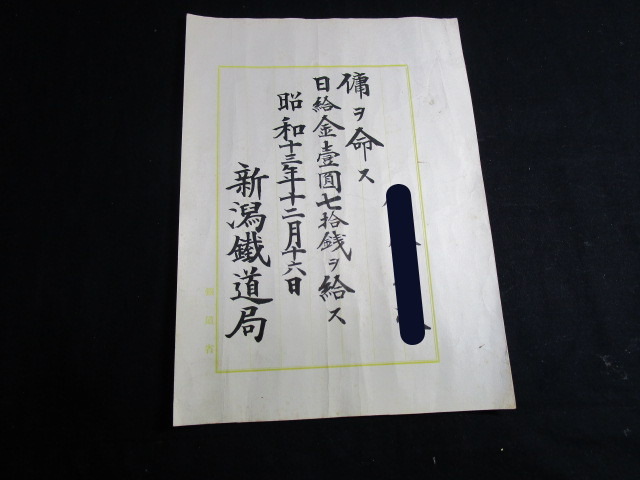 傭ヲ命ス
日給金壹圓七拾銭ヲ給ス
昭和十三年十二月十六日
新潟鐵道局
鐵道省